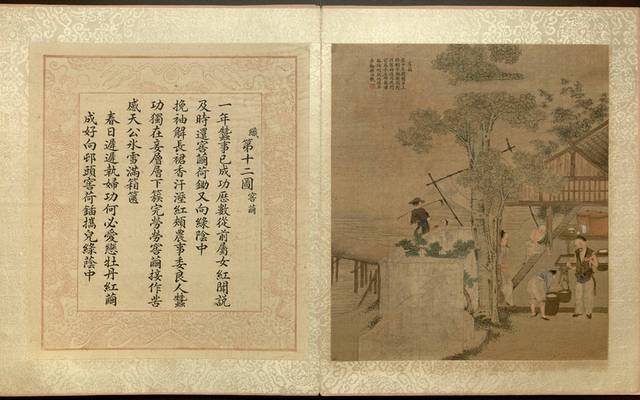 織第十二圖窖繭
一年蠶事已成功歷數從前屬女紅聞說
及時還窖繭荷鋤又向綠陰中
挽袖解長裙香汗溼紅頰農事委良人蠶
功獨在妾層層下簇完勞勞窖繭接作苦
感天公冰雪滿箱篋
春日遲遲執婦功何必愛戀牡丹紅繭
成好向邨頭窖荷鍤攜兒綠陰中